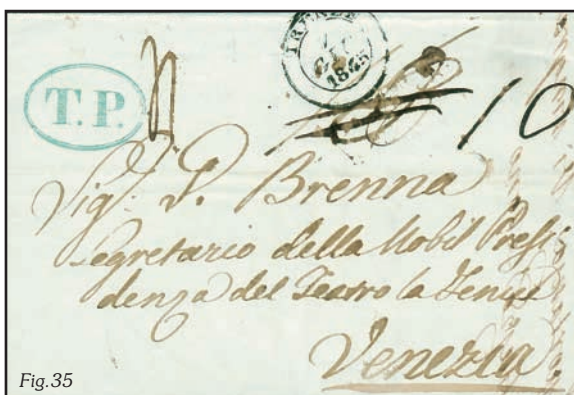 FIRENZE
GIU
1845
T.P.
10
Sig.r P. Brenna
Segretario della Nobil Presi-
denza del Teatro la Fenice
Venezia.
Fig.35